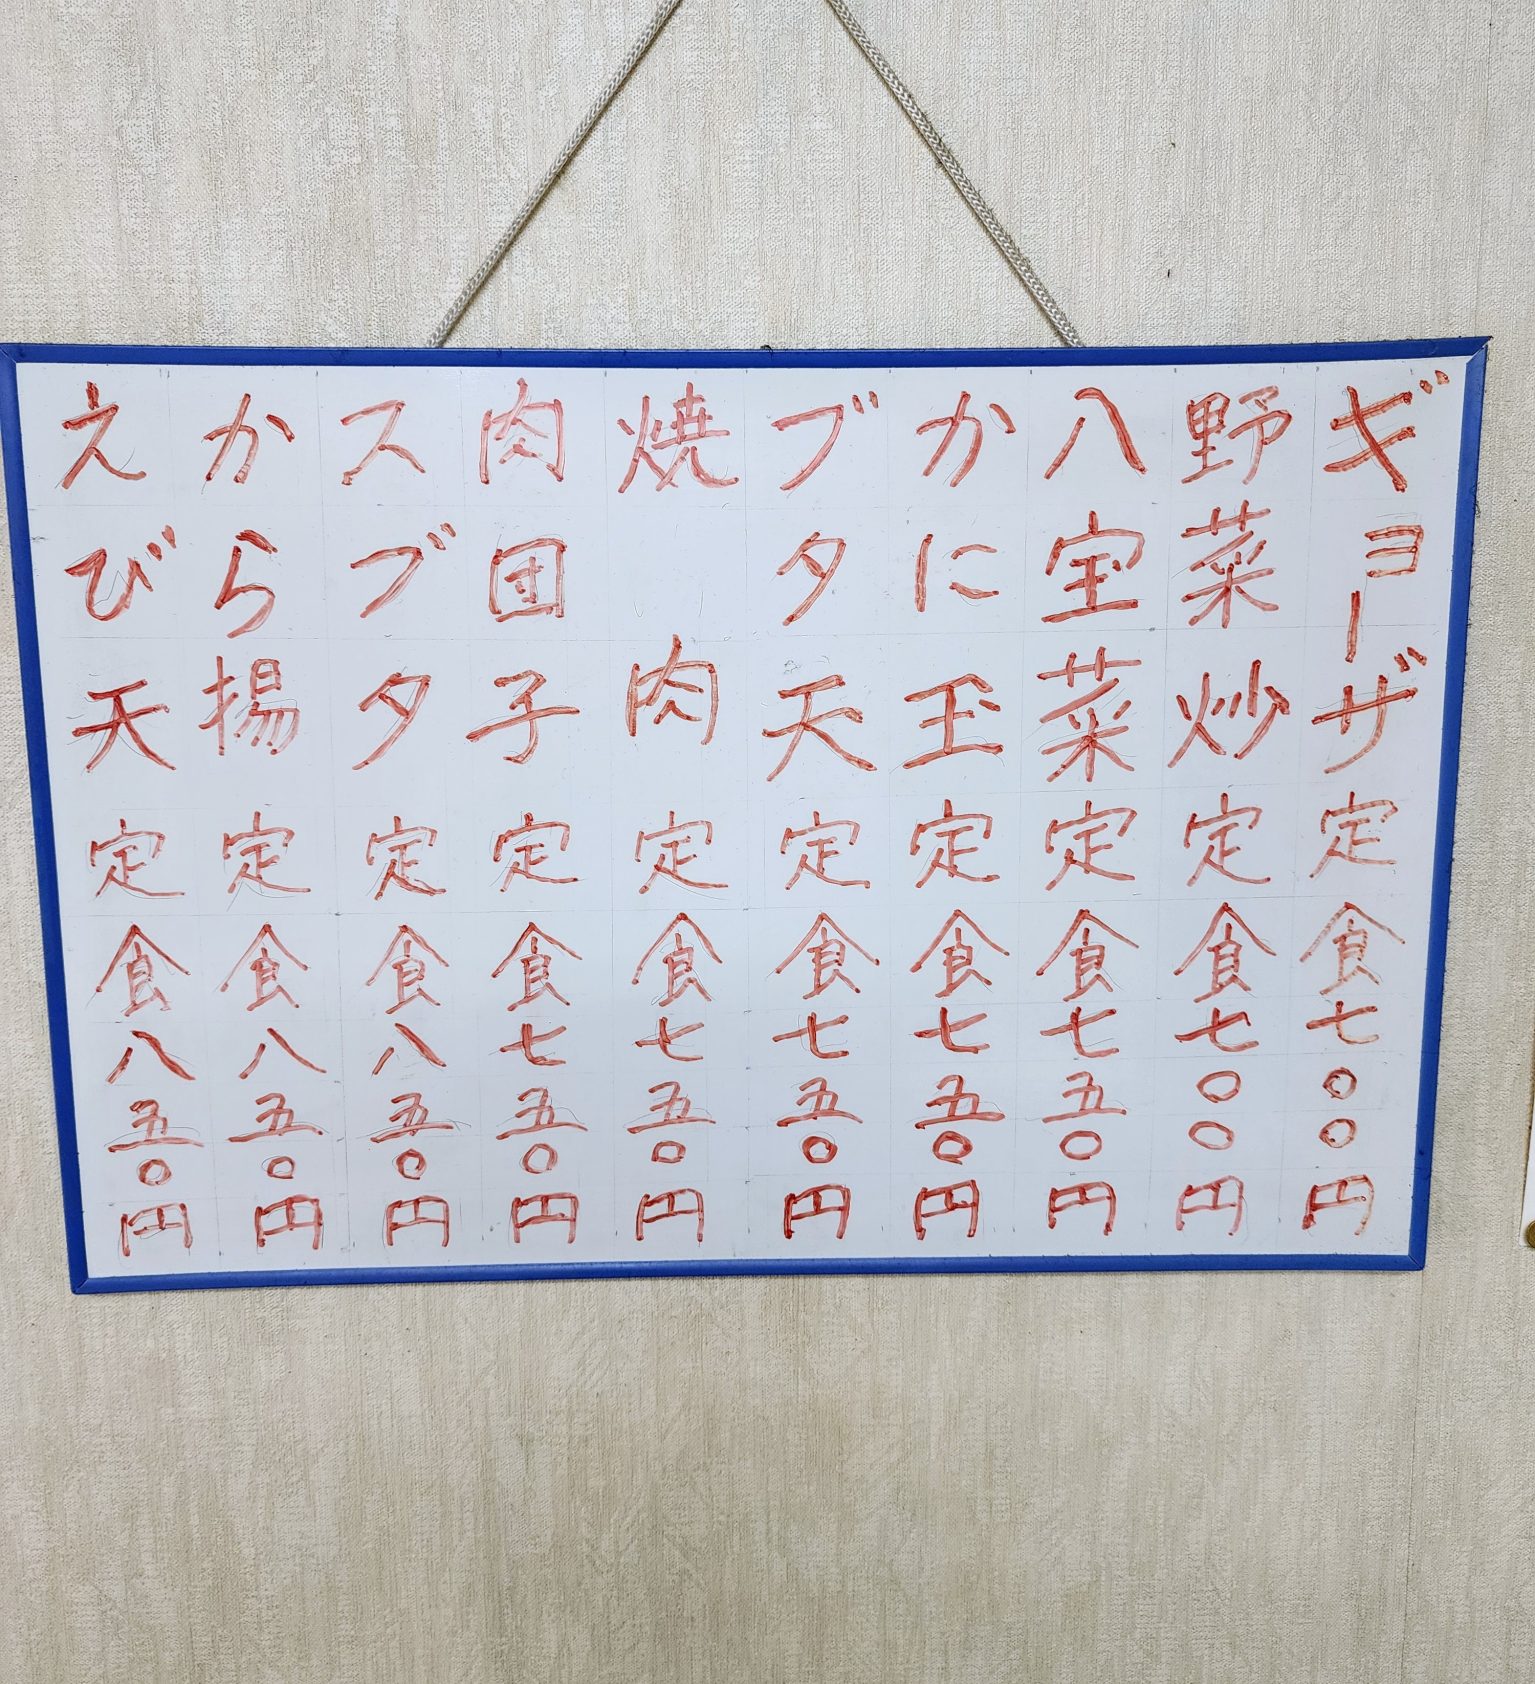 ギョーザ定食七〇〇円
野菜炒定食七〇〇円
八宝菜定食七五〇円
かに玉定食七五〇円
ブタ天定食七五〇円
焼肉定食七五〇円
肉団子定食七五〇円
スブタ定食八五〇円
から揚定食八五〇円
えび天定食八五〇円